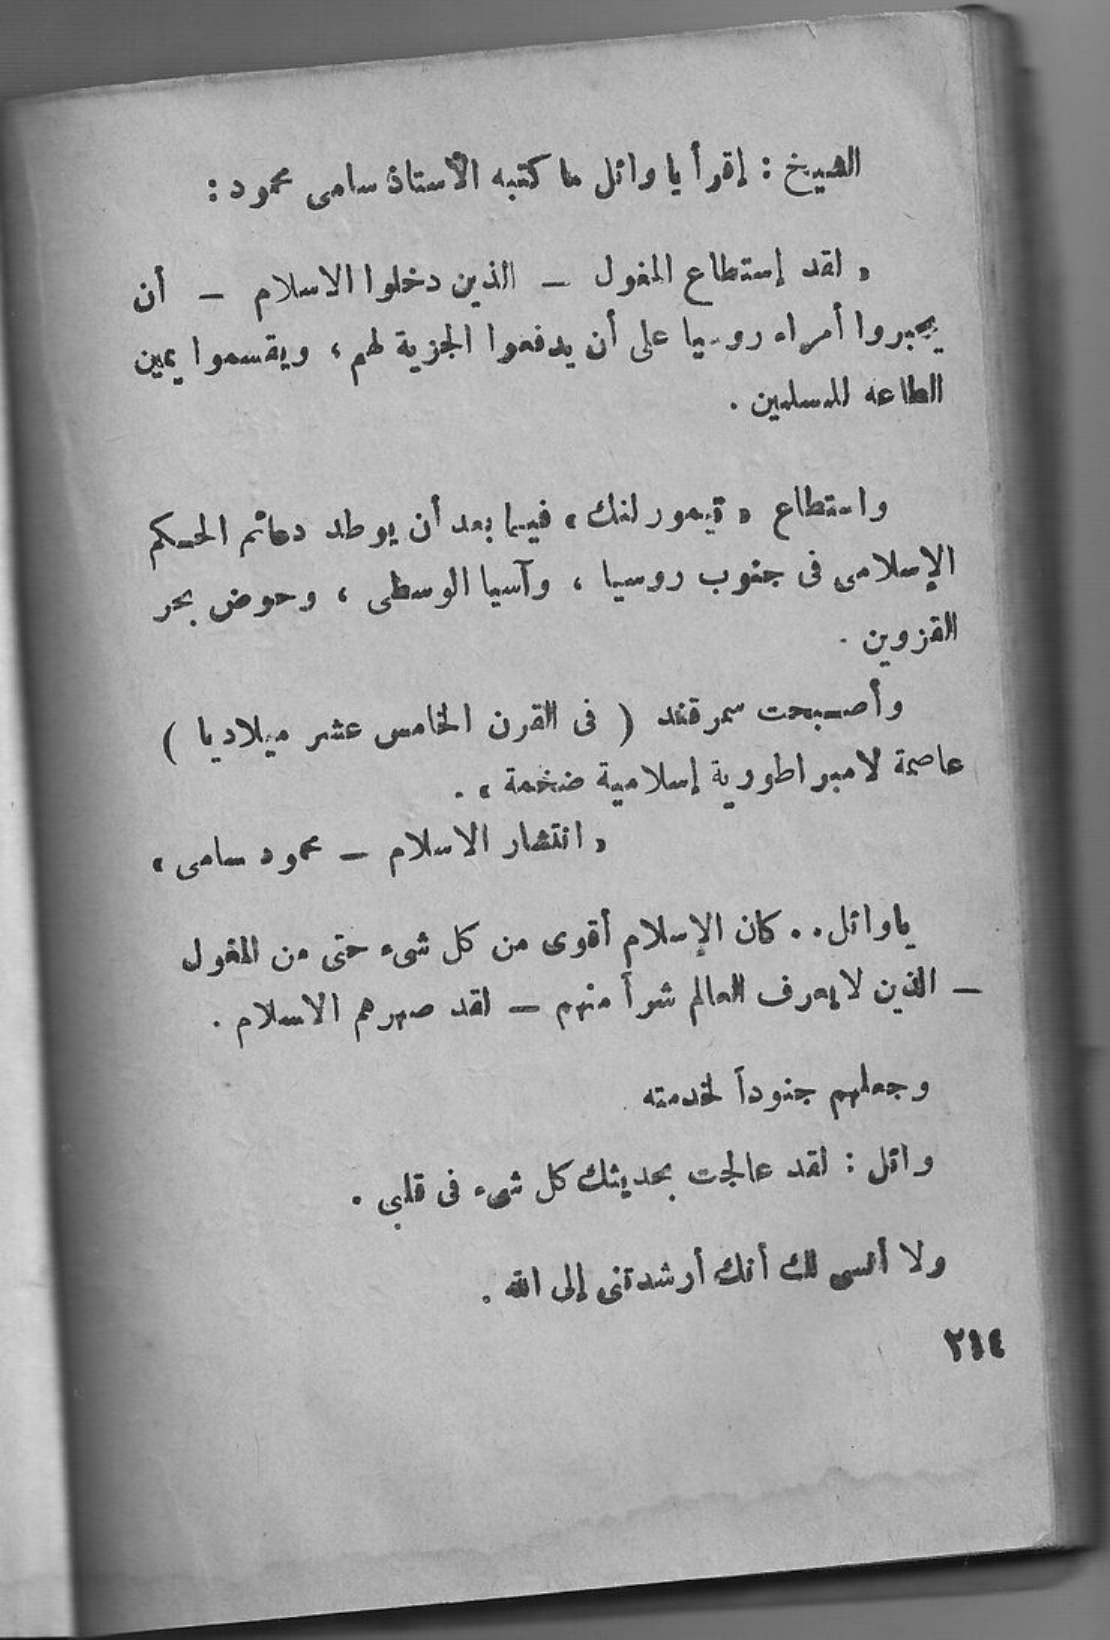 الشيخ : إقرأ يا وائل ما كتبه الأستاذ سامى محمود :
« لقد إستطاع المغول — الذين دخلوا الاسلام — أن
يجبروا أمراء روسيا على أن يدفعوا الجزية لهم ، ويقسموا يمين
الطاعه للمسلمين .
واستطاع « تيمور لنك » فيما بعد أن يوطد دعائم الحكم
الإسلامى فى جنوب روسيا ، وآسيا الوسطى ، وحوض بحر
القزوين .
وأصبحت سمرقند ( فى القرن الخامس عشر ميلاديا )
عاصمة لامبراطورية إسلامية ضخمة » .
« انتشار الاسلام — محمود سامى »
ياوائل . . كان الإسلام أقوى من كل شىء حتى من المغول
— الذين لا يعرف العالم شراً منهم — لقد صهرهم الاسلام .
وجعلهم جنوداً لخدمته .
وائل : لقد عالجت بحديثك كل شىء فى قلبى .
ولا أنسى لك أنك أرشدتنى إلى الله .
٢١٤